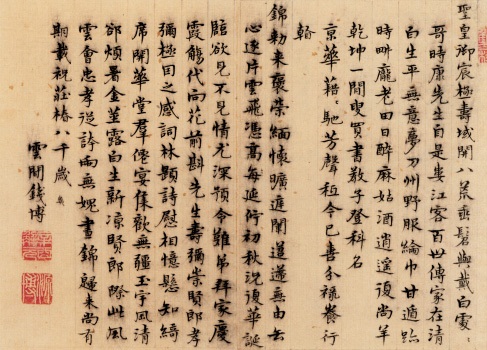 聖皇御宸極壽域開八荒垂髫與戴白處〻
哥時康先生自是婁江客百世傳家在清
白生平無意夢刀州野服綸巾甘遁跡
時畊龐老田日醉麻姑酒逍遙復尚羊
乾坤一閒叟買書教子登科名
京華藉〻馳芳聲秪今已喜分祿養行
翰
錦勅來褒榮緬懷曠違闊道遠無由去
心逐片雲飛憑高每延佇初秋況復華誕
臨欲見不見情尤深頻令難弟拜家慶
霞觴代向花前斟先生壽彌崇賢郎孝
彌極因之感詞林題詩慰相憶懸知綺
席開華堂羣僊宴集歡無疆玉宇風清
卻煩暑金莖露白生新涼賢郎際此風
雲會忠孝從誇兩無媿晝錦歸來尚有
期載祝莊椿八千歲
雲間錢博